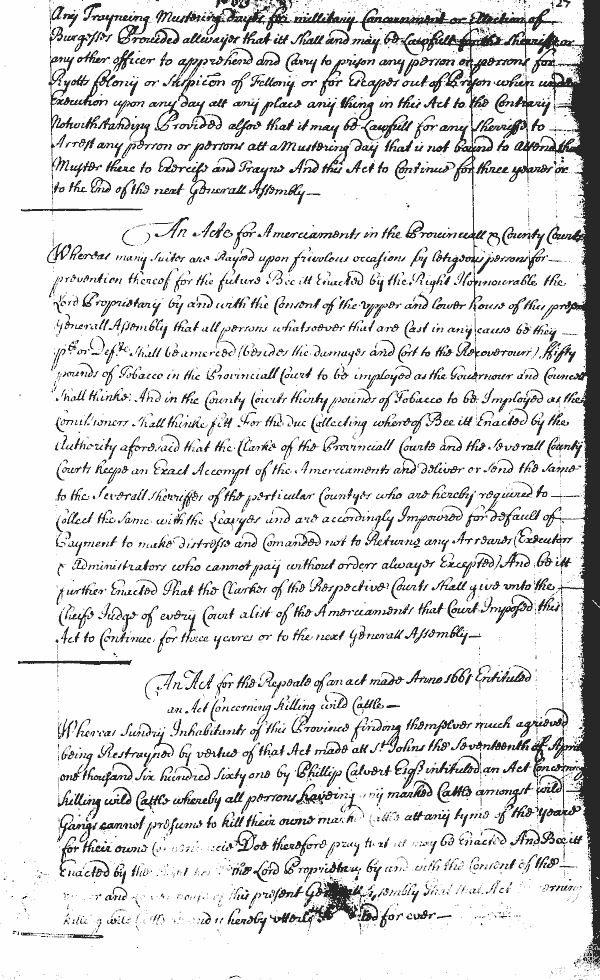 27
Any Trayneing Mustering dayes for millitary Concernment or Ellection of
Burgesses Provided allwayes that itt shall and may be Lawfull for the Sherriffe or
any other officer to apprehend and Carry to prison any person or persons for
Ryotts fellony or Suspicõn of Fellony or for Escapes out of Pryson when under
Execution upon any day att any place any thing in this Act to the Contrary
Notwithstanding Provided alsoe that it may be Lawfull for any Sherriffe to
Arrest any person or persons att a Mustering day that is not bound to attend that
Muster there to Exercise and Trayne And this Act to Continue for three yeares or
to the End of the next Generall Assembly
An Acte for Amerciaments in the Provinciall & County Courts
Whereas many Suites are Raysed upon frivolous occasions by Letigeous persons for
prevention thereof for the future Bee itt Enacted by the Right Honnourable the
Lord Proprietary by and with the Consent of the upper and lower house of this present
Generall Assembly that all persons whatsoever that are Cast in any cause be they
plt or Deft shall be amerced (besides the damages and Cost to the Recoverour) fifty
pounds of Tobacco in the Provinciall Court to be imployed as the Governour and Councell
Shall thinke And in the County Courts thirty pounds of Tobacco to be Imployed as the
Comissioners Shall thinke fitt For the due Collecting whereof Bee itt Enacted by the
Authority aforesaid that the Clarke of the Provinciall Courte and the Severall County
Courts Keepe an Exact Accompt of the Amerciaments and deliver or send the Same
to the Severall sherriffes of the perticular Countyes who are hereby required to
Collect the Same with the Leavyes and are accordingly Impowred for default of
Payment to make distresse and Comanded not to Returne any Arreares (Executors
& Administrators who cannot pay without orders alwayes Excepted) And be itt
further Enacted That the Clarkes of the Respective Courts shall give unto the
Cheife Judge of every Court a list of the Amerciaments that Court Imposed this
Act to Continue for three yeares or to the next Generall Assembly
An Act for the Repeale of an act made Anno 1661 Entituled
an Act Concerning killing wild Cattle
Whereas Sundry Inhabitants of this Province finding themselves much agrieved
being Restrayned by vertue of that Act made att St Johns the Seventeenth of Aprill
one thousand Six hundred Sixty one by Phillip Calvert Esqr intituled an Act Concerning
killing wild Cattle whereby all persons haveing any marked Cattle amongst wild
Gangs cannot presume to kill their owne mark Cattle att any tyme of the yeare
for their owne Doe therefore pray that itt may be Enacted And Bee itt
Enacted by the Right Lord Proprietary by and with the Consent of the
and house of this present Generall Assembly that that Act Concerning
killing wild Cattle and is hereby utterly for ever